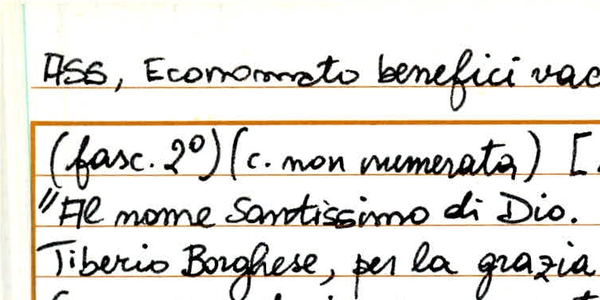 ASS, Economato benefici vac
(fasc. 2°) (c. non numerata) [
"Al nome Santissimo di Dio.
Tiberio Borghese, per la grazia